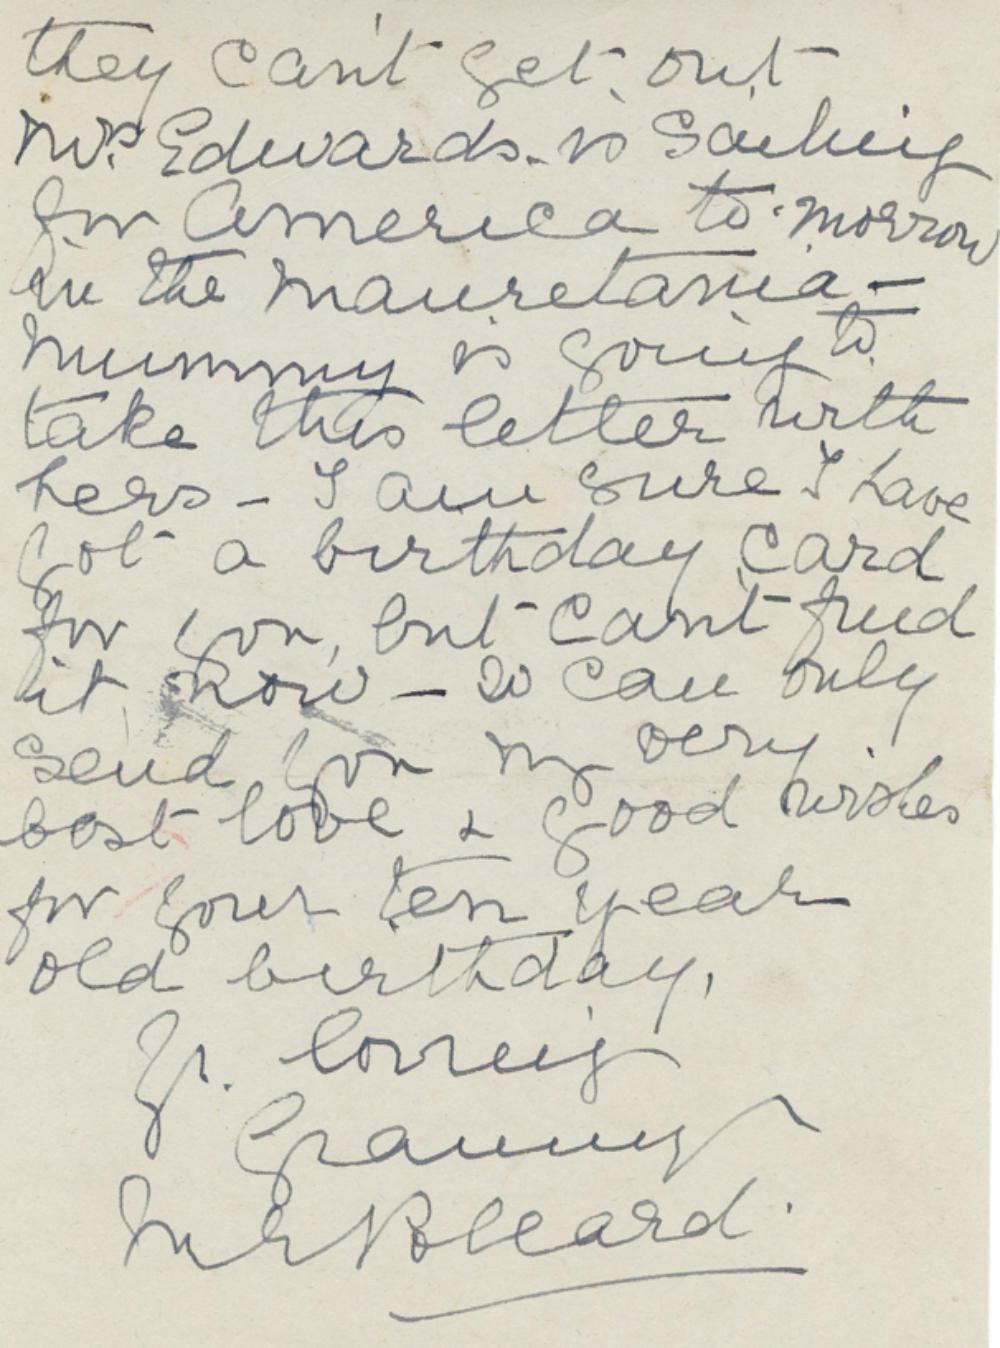 they can't get out
Mrs Edwards is Sailing
for America to-morrow
in the Mauretania -
Mummy is going to
take this letter with
hers - I am sure I have
got a birthday card
for you, but can't find
it now - so can only
send you my very
best love & good wishes
for your ten year
old birthday,
Yr. loving
Granny
Pollard.